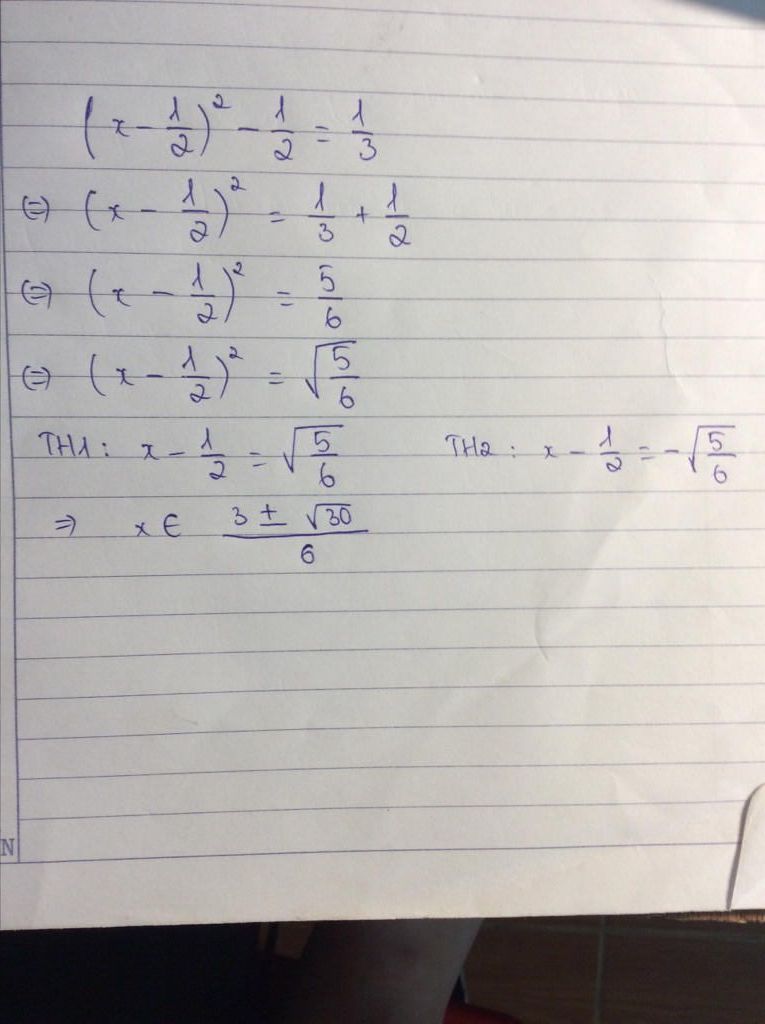 (x - 1/2)² - 1/2 = 1/3
⇔ (x - 1/2)² = 1/3 + 1/2
⇔ (x - 1/2)² = 5/6
⇔ (x - 1/2)² = √(5/6)
TH1: x - 1/2 = √(5/6) TH2: x - 1/2 = -√(5/6)
⇒ x ∈ (3 ± √30)/6
N